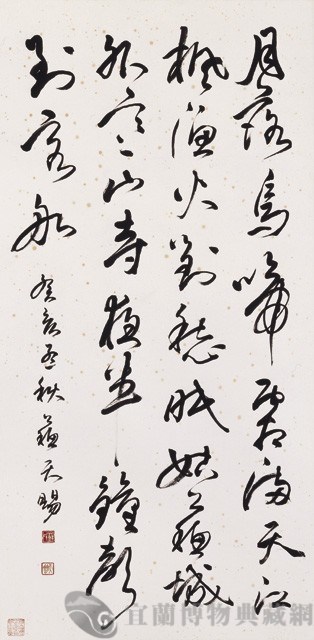 月落烏啼霜滿天江
楓漁火對愁眠姑蘇城
外寒山寺夜半鐘聲
到客船
癸亥孟秋蘇天賜
宜蘭博物典藏網